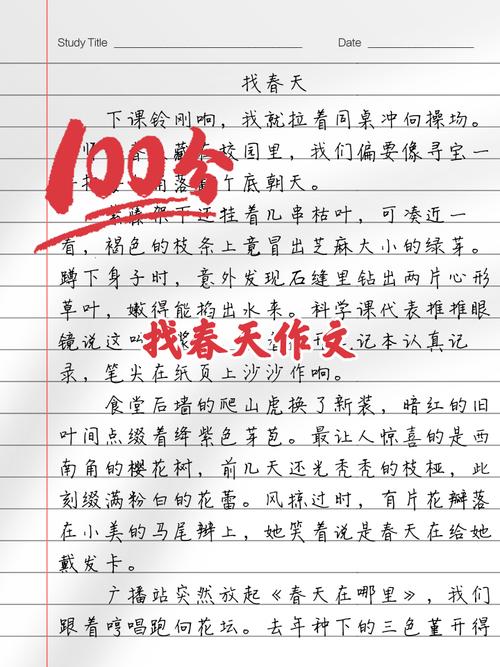 Study Title
Date
找春天
下课铃刚响，我就拉着同桌冲向操场。
100分
藏 校园里，我们偏要像寻宝一
角落 个底朝天。
架下还挂着几串枯叶，可凑近一
看，褐色的枝条上竟冒出芝麻大小的绿芽。
蹲下身子时，意外发现石缝里钻出两片心形
草叶，嫩得能掐出水来。科学课代表推推眼
镜说这 记本认真记
找春天作文
录，笔尖在纸页上沙沙作响。
食堂后墙的爬山虎换了新装，暗红的旧
叶间点缀着绛紫色芽苞。最让人惊喜的是西
南角的樱花树，前几天还光秃秃的枝桠，此
刻缀满粉白的花蕾。风掠过时，有片花瓣落
在小美的马尾辫上，她笑着说是春天在给她
戴发卡。
广播站突然放起《春天在哪里》，我们
跟着哼唱跑向花坛。去年种下的三色堇开得